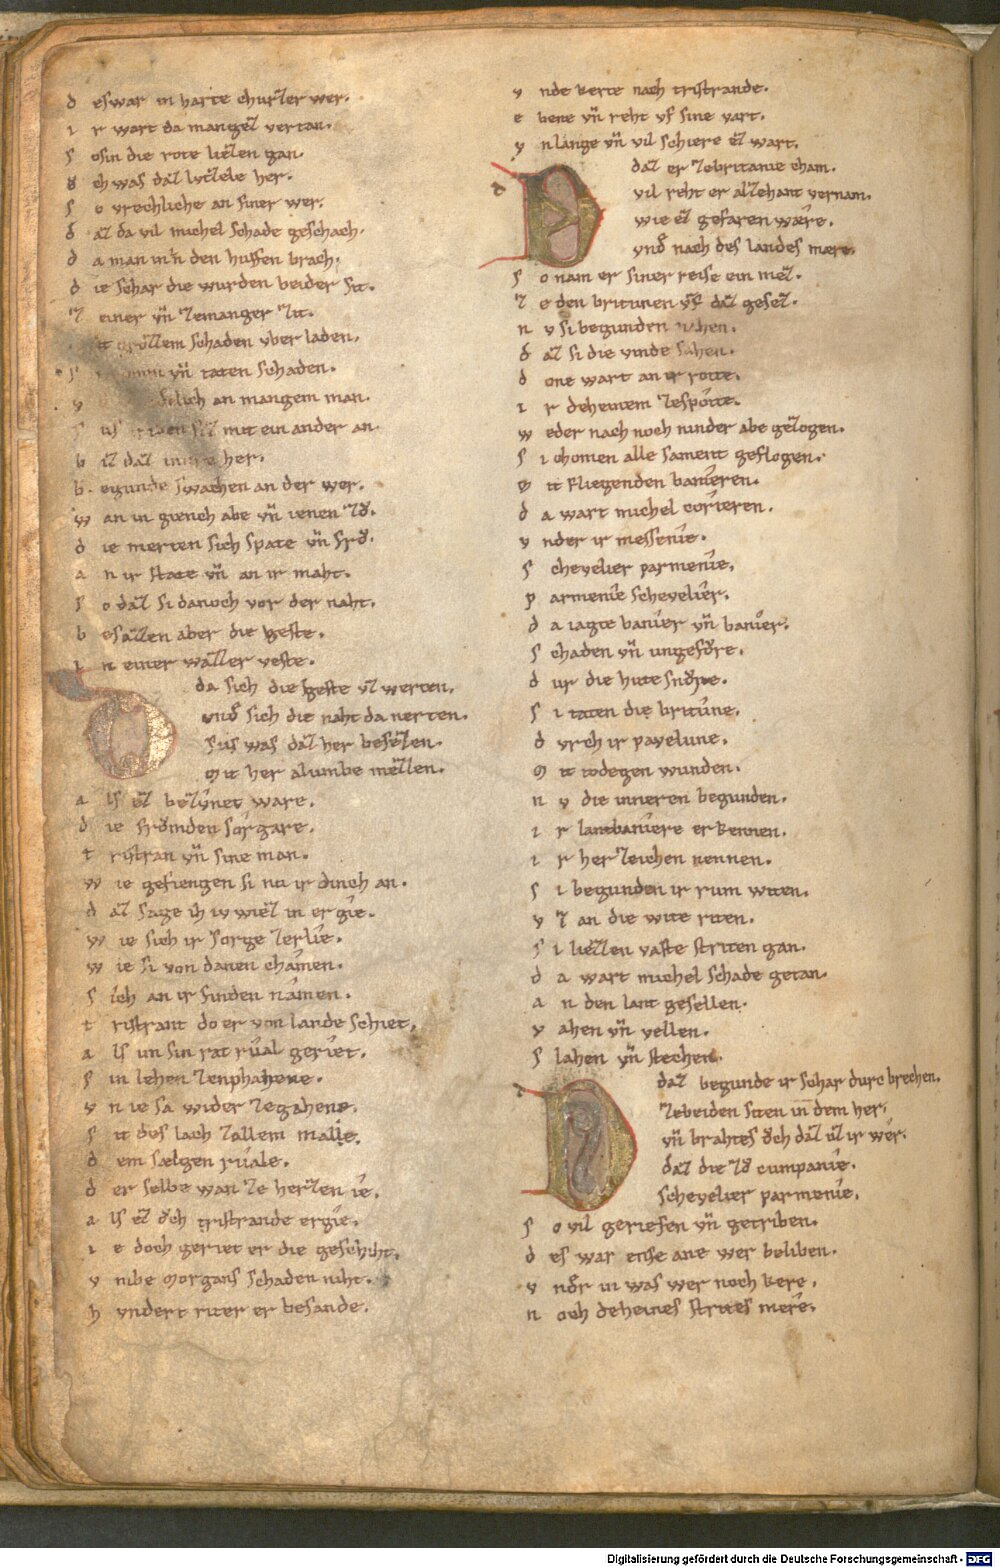 d eswar in harte churzer wer.
i r wart da mangez vertan.
s osin die rote liezen gan.
d eh was daz lvtzele her.
s o vrechliche an siner wer.
d az da vil michel schade geschach.
d a man in'n den huffen brach.
d ie schar die wurden beider sit.
z einer vn̄ zemanger zit.
it grozzem schaden vber laden.
vn̄ taten schaden.
v lich an mangem man.
s us mit ein ander an
b iz daz her.
b egunde swachen an der wer.
w an in giench abe vn̄ ienen zů.
d ie merten sich spate vn̄ frů.
a n ir state vn̄ an ir maht.
s o daz si danoch vor der naht.
b esazzen aber die geste.
i n einer wazzer veste.
da sich die geste vz werten.
vnd̄ sich die naht da nerten.
sus was daz her besezen.
Mit her alumbe mezzen.
a ls ez bezvnet ware.
d ie frömden sorgare.
t ristran vn̄ sine man.
w ie gefiengen si nu ir dinch an.
d az sage ih iv wiez in ergie.
w ie sich ir sorge zerlie.
w ie si von danen chamen.
s ich an ir finden namen.
t ristrant do er von lande schiet.
a ls im sin rat rual geriet.
s in lehen zenphahene.
v n ie sa wider zegahene.
s it des lach zallem male.
d em sæligen ruale.
d er selbe wan ze herzen ie.
a ls ez doch tristrande ergie.
i e doch geriet er die geschiht.
v mbe Morgans schaden niht.
h vndert riter er besande.
v nde kerte nach tristrande.
e bene vn̄ reht vf sine vart.
v nlange vn̄ vil schiere ez wart.
daz er zebritanie cham.
vil reht er alzehant vernam.
wie ez gefaren wære.
vnd̄ nach des landes mære.
s o nam er siner reise ein mez.
z e den britunen vf daz gesez.
n v si begunden nahen.
d az si die vinde sahen.
d one wart an ir rotte.
i r deheinem zespotte.
w eder nach noch ninder abe gezogen.
s i chomen alle sament geflogen.
M it fliegenden banieren.
d a wart michel corieren.
v nder ir messenie.
s chevelier parmenie.
p armenie schevelier.
d a iagte banier vn̄ banier.
s chaden vn̄ ungefůre.
d ur die hute snůre.
s i taten die britune.
d vrch ir pavelune.
M it todegen wunden.
n v die inneren begunden.
i r lantbaniere erkennen.
i r herzeichen nennen.
s i begunden ir rum witen.
v z an die wite riten.
s i liezzen vaste striten gan.
d a wart michel schade getan.
a n den lant gesellen.
v ahen vn̄ vellen.
s lahen vn̄ stechen.
daz begunde ir schar durc brechen.
zebeiden siten in dem her.
vn̄ brahtes och daz uz ir wer.
daz die zů cumpanie.
schevelier parmenie.
s o vil geriefen vn̄ getriben.
d es war ense ane wer beliben.
v nd̄r in was wer noch kere.
n och deheines strites mere.
Digitalisierung gefördert durch die Deutsche Forschungsgemeinschaft - DFG